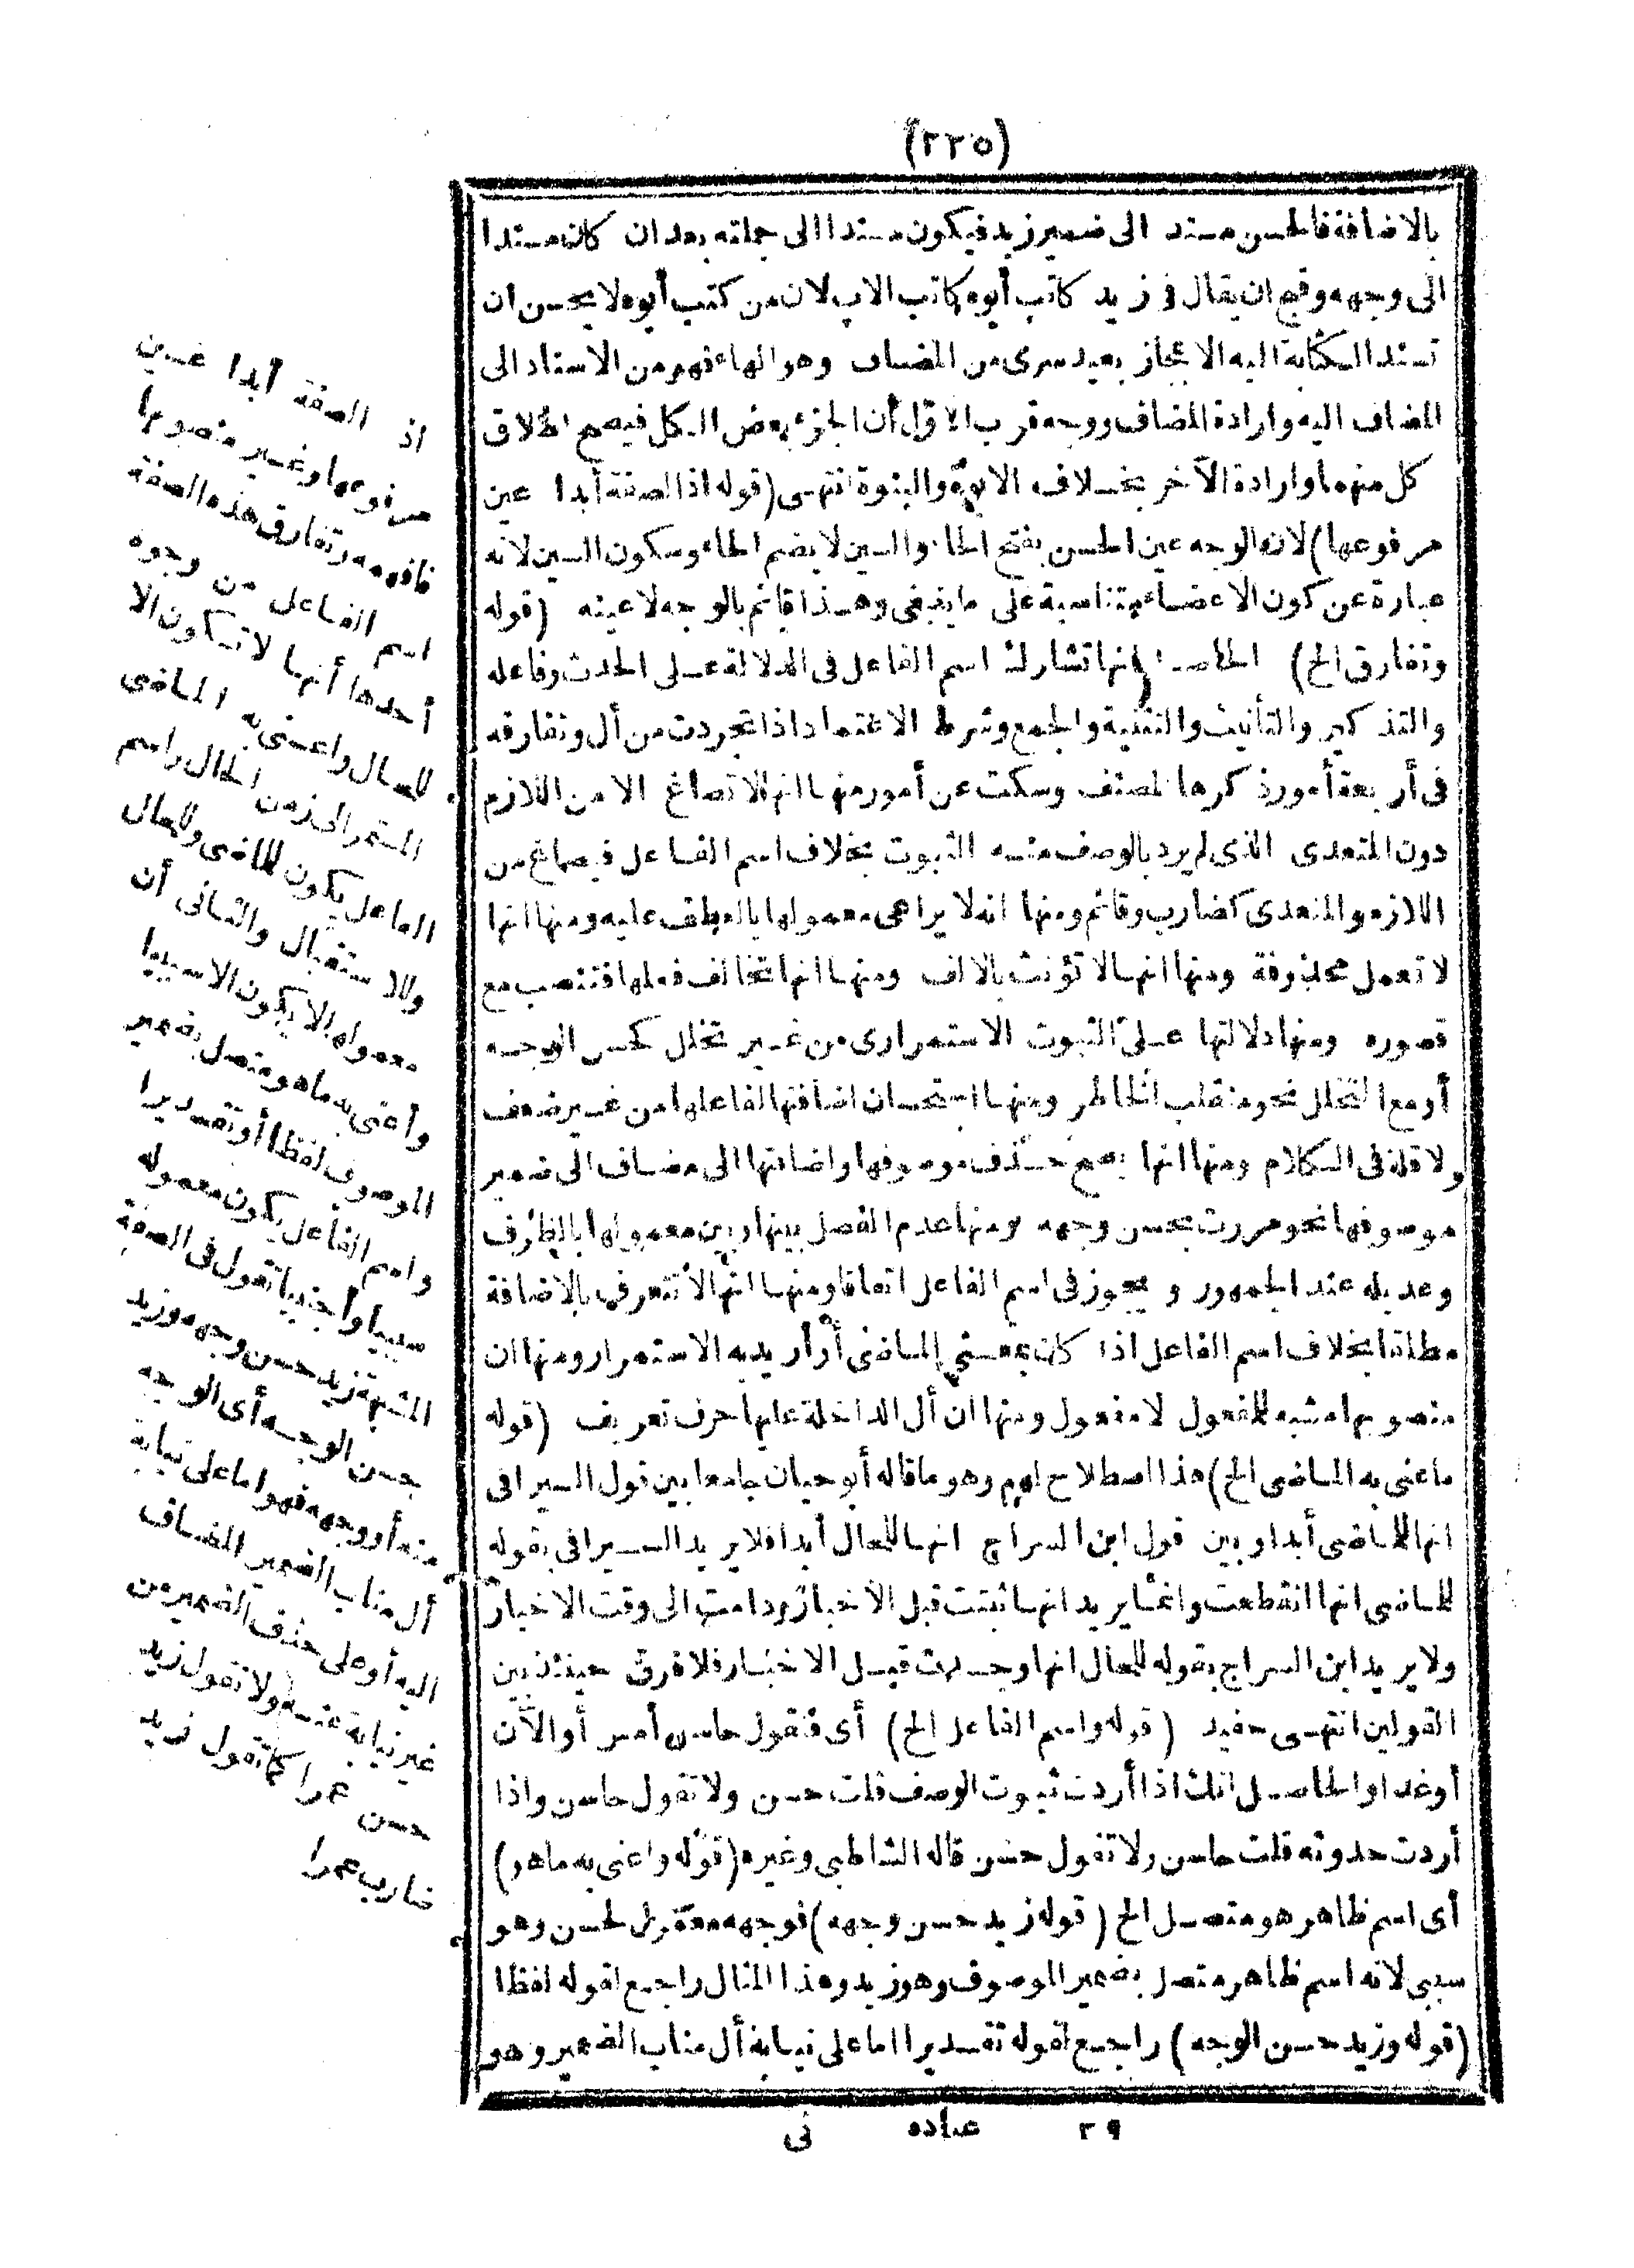 (٢٢٥)
بالاضافة فالحسن مسند الى ضمير زيد فيكون مسندا الى جملته بعد ان كان مسندا
الى وجهه وقبح ان يقال فى زيد كاتب أبوه كاتب الاب لان من كتب أبوه لا يحسن ان
تسند الكتابة اليه الا بمجاز بعيد سرى من المضاف وهو الهاء فهم من الاسناد الى
المضاف اليه وارادة المضاف ووجه قرب الاول أن الجزء بعض الكل فيصح اطلاق
كل منهما وارادة الآخر بخلاف الابوة والبنوة انتهى (قوله اذ الصفة أبدا عين
مرفوعها) لانه الوجه عين الحسن بفتح الحاء والسين لا بضم الحاء وسكون السين لانه
عبارة عن كون الاعضاء متناسبة على ما ينبغى وهذا قائم بالوجه لا عينه (قوله
وتفارق الخ) الحاصل انها تشارك اسم الفاعل فى الدلالة على الحدث وفاعله
والتذكير والتأنيث والتثنية والجمع وشرط الاعتماد اذا تجردت من أل وتفارقه
فى أربعة أمور ذكرها المصنف وسكت عن أمور منها انها لا تصاغ الا من اللازم
دون المتعدى الذى لم يرد بالوصف منه الثبوت بخلاف اسم الفاعل فيصاغ من
اللازم والمتعدى كضارب وقائم ومنها انه لا يراعى معمولها بالعطف عليه ومنها انها
لا تعمل محذوفة ومنها انها لا تؤنث بالالف ومنها انها تخالف فعلها فتنصب مع
قصوره ومنها دلالتها على الثبوت الاستمرارى من غير تخلل كحسن الوجه
أو مع التخلل نحو منقلب الخاطر ومنها استحسان اضافتها لفاعلها من غير ضعف
ولا قلة فى الكلام ومنها انها يصح حذف موصوفها واضافتها الى مضاف الى ضمير
موصوفها نحو مررت بحسن وجهه ومنها عدم الفصل بينها وبين معمولها بالظرف
وعديله عند الجمهور ويجوز فى اسم الفاعل اتفاقا ومنها انها لا تتعرف بالاضافة
مطلقا بخلاف اسم الفاعل اذا كان بمعنى الماضى أو أريد به الاستمرار ومنها ان
منصوبها مشبه بالمفعول لا مفعول ومنها ان أل الداخلة عليها حرف تعريف (قوله
ما عنى به الماضى الخ) هذا اصطلاح لهم وهو ما قاله أبو حيان جامعا بين قول السيرافى
انها للماضى أبدا وبين قول ابن السراج انها للحال أبدا فلا يريد السيرافى بقوله
للماضى انها انقطعت وانما يريد انها ثبتت قبل الاخبار ودامت الى وقت الاخبار
ولا يريد ابن السراج بقوله للحال انها وجدت قبل الاخبار فلا فرق حينئذ بين
القولين انتهى حفيد (قوله واسم الفاعل الخ) أى فتقول حاسن أمس أو الآن
أو غدا والحاصل انك اذا أردت ثبوت الوصف قلت حسن ولا تقول حاسن واذا
أردت حدوثه قلت حاسن ولا تقول حسن قاله الشاطبى وغيره (قوله واعنى به ما هو)
أى اسم ظاهر هو متصل الخ (قوله زيد حسن وجهه) فوجهه معمول لحسن وهو
سببى لانه اسم ظاهر متصل بضمير الموصوف وهو زيد وهذا المثال راجع لقوله لفظا
(قوله وزيد حسن الوجه) راجع لقوله تقديرا اما على نيابة أل مناب الضمير وهو
٢٩ عباده نى
اذ الصفة أبدا عين
مرفوعها وغير منصوبها
فافهمه وتفارق هذه الصفة
اسم الفاعل من وجوه
أحدها أنها لا تكون الا
للحال واعنى به الماضى
المستمر الى زمن الحال واسم
الفاعل يكون للماضى وللحال
وللاستقبال والثانى أن
معمولها لا يكون الا سببيا
وأعنى به ما هو متصل بضمير
الموصوف لفظا أو تقديرا
واسم الفاعل يكون معموله
سببيا وأجنبيا تقول فى الصفة
المشبهة زيد حسن وجهه وزيد
حسن الوجه أى الوجه
منه أو وجهه فهو اما على نيابة
أل مناب الضمير المضاف
اليه أو على حذف الضمير من
غير نيابة عنه ولا تقول زيد
حسن عمرا كما تقول زيد
ضارب عمرا